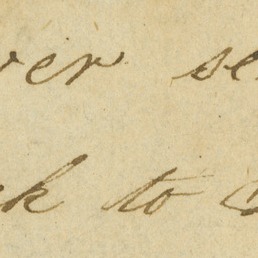 ver se
ck to